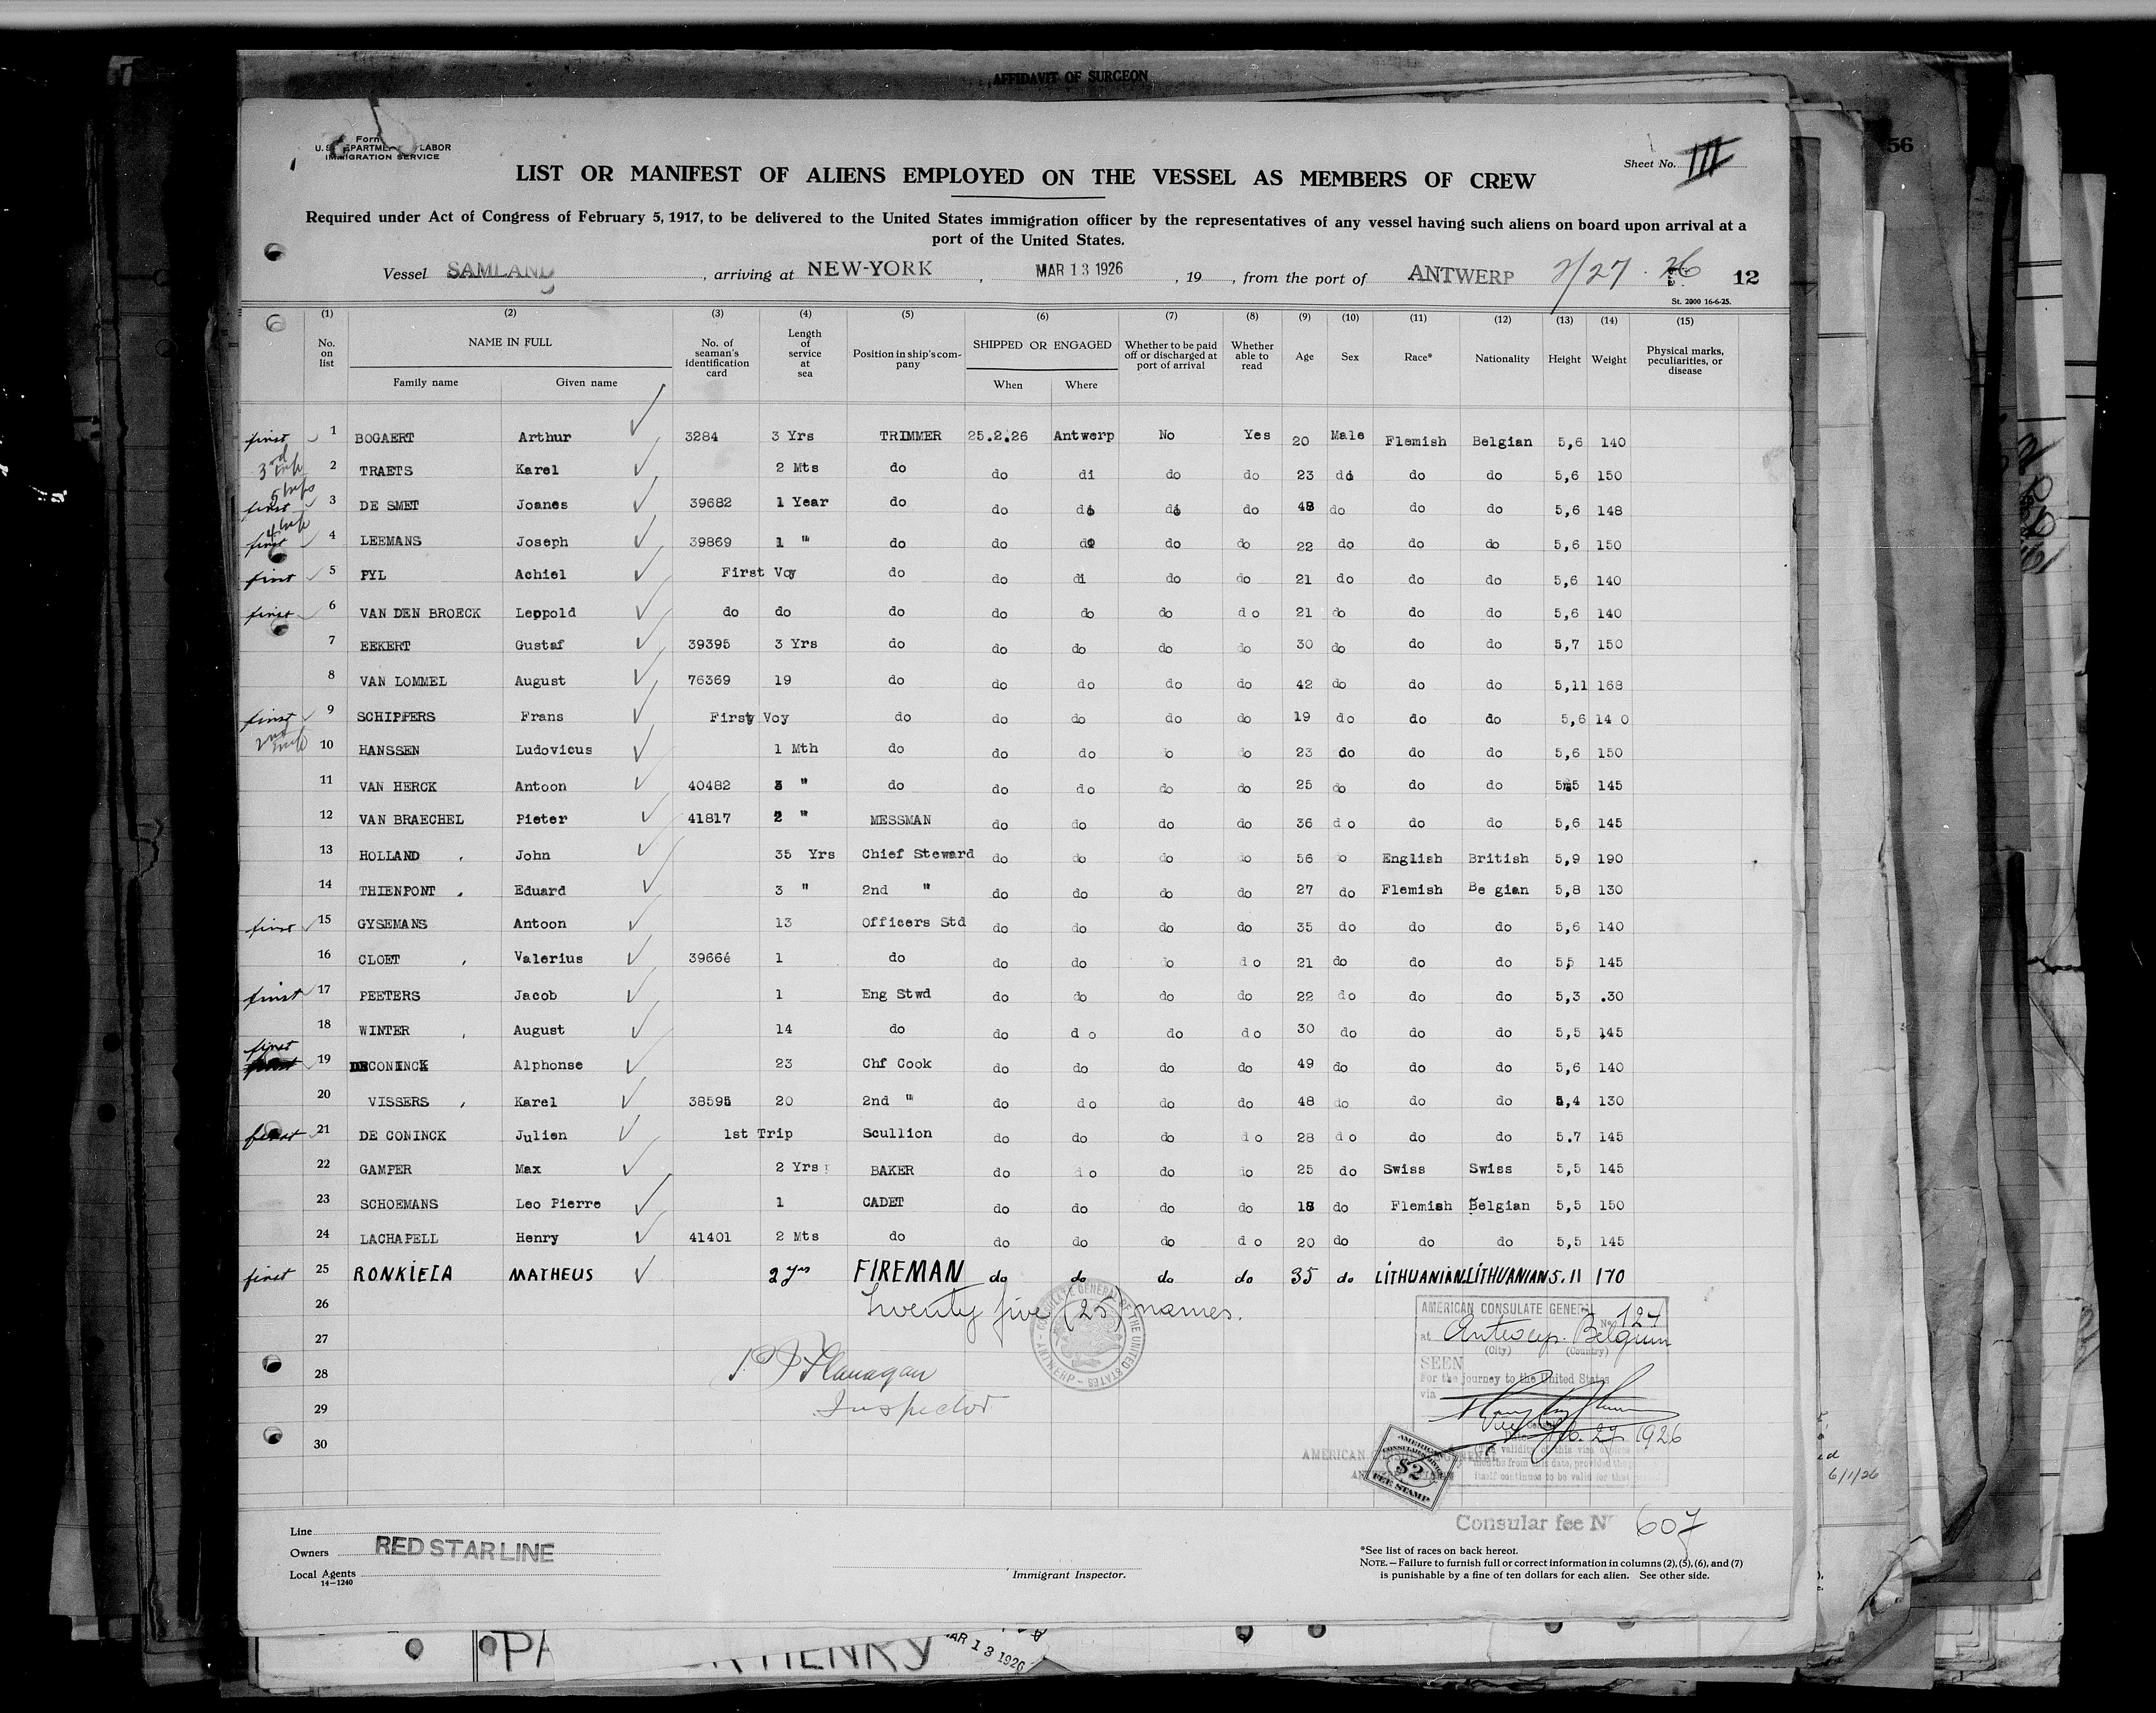 AFFIDAVIT OF SURGEON
56
Form
U.S. DEPARTMENT LABOR
IMMIGRATION SERVICE
Sheet No. III
LIST OR MANIFEST OF ALIENS EMPLOYED ON THE VESSEL AS MEMBERS OF CREW
Required under Act of Congress of February 5, 1917, to be delivered to the United States immigration officer by the representatives of any vessel having such aliens on board upon arrival at a
port of the United States.
Vessel SAMLAND, arriving at NEW-YORK, MAR 13 1926, 19, from the port of ANTWERP 2/27.26 12
St. 2000 16-6-25.
(1) (2) (3) (4) (5) (6) (7) (8) (9) (10) (11) (12) (13) (14) (15)
No. on list NAME IN FULL Family name Given name No. of seaman's identification card Length of service at sea Position in ship's company SHIPPED OR ENGAGED When Where Whether to be paid off or discharged at port of arrival Whether able to read Age Sex Race* Nationality Height Weight Physical marks, peculiarities, or disease
first 1 BOGAERT Arthur 3284 3 Yrs TRIMMER 25.2.26 Antwerp No Yes 20 Male Flemish Belgian 5,6 140
3rd trip 2 TRAETS Karel 2 Mts do do di do do 23 do do do 5,6 150
5 trips first 3 DE SMET Joanes 39682 1 Year do do do do do 48 do do do 5,6 148
4 trip first 4 LEEMANS Joseph 39869 1 " do do do do do 22 do do do 5,6 150
first 5 PYL Achiel First Voy do do di do do 21 do do do 5,6 140
first 6 VAN DEN BROECK Leopold do do do do do do do 21 do do do 5,6 140
7 EEKERT Gustaf 39395 3 Yrs do do do do do 30 do do do 5,7 150
8 VAN LOMMEL August 76369 19 do do do do do 42 do do do 5,11 168
first 9 SCHIPPERS Frans First Voy do do do do do 19 do do do 5,6 14 0
2nd trip 10 HANSSEN Ludovicus 1 Mth do do do o do 23 do do do 5,6 150
11 VAN HERCK Antoon 40482 3 " do do do do do 25 do do do 5,5 145
12 VAN BRAECHEL Pieter 41817 2 " MESSMAN do do do do 36 do do do 5,6 145
13 HOLLAND John 35 Yrs Chief Steward do do do do 56 o English British 5,9 190
14 THIENPONT Eduard 3 " 2nd " do do do do 27 do Flemish Be gian 5,8 130
first 15 GYSEMANS Antoon 13 Officers Std do do do do 35 do do do 5,6 140
16 CLOET Valerius 39666 1 do do do do do 21 do do do 5,5 145
first 17 PEETERS Jacob 1 Eng Stwd do do do do 22 do do do 5,3 .30
18 WINTER August 14 do do do do do 30 do do do 5,5 145
first 19 DECONINCK Alphonse 23 Chf Cook do do do do 49 do do do 5,6 140
20 VISSERS Karel 38595 20 2nd " do do do do 48 do do do 5,4 130
first 21 DE CONINCK Julien 1st Trip Scullion do do do do 28 do do do 5.7 145
22 GAMPER Max 2 Yrs BAKER do do do do 25 do Swiss Swiss 5,5 145
23 SCHOEMANS Leo Pierre 1 CADET do do do do 18 do Flemish Belgian 5,5 150
24 LACHAPELL Henry 41401 2 Mts do do do do do 20 do do do 5,5 145
first 25 RONKIEIA MATHEUS 2 yrs FIREMAN do do do do 35 do LITHUANIAN LITHUANIAN 5.11 170
26 Twenty five (25) names.
27
28
29
30
Flanagan
Inspector
CONSULATE GENERAL OF THE UNITED STATES - ANTWERP -
AMERICAN CONSULATE GENERAL
No. 124
at Antwerp. Belgium
(City) (Country)
SEEN
For the journey to the United States
via
Feb. 27 1926
The validity of this visa expires
months from this date, provided the
itself continues to be valid for that
AMERICAN CONSULATE GENERAL
AMERICAN CONSULAR SERVICE $2 FEE STAMP
Consular fee No 607
Line
Owners RED STAR LINE
Local Agents
14—1240
Immigrant Inspector.
*See list of races on back hereof.
NOTE.—Failure to furnish full or correct information in columns (2), (5), (6), and (7)
is punishable by a fine of ten dollars for each alien. See other side.
6/1/26
HENRY
MAR 13 1926